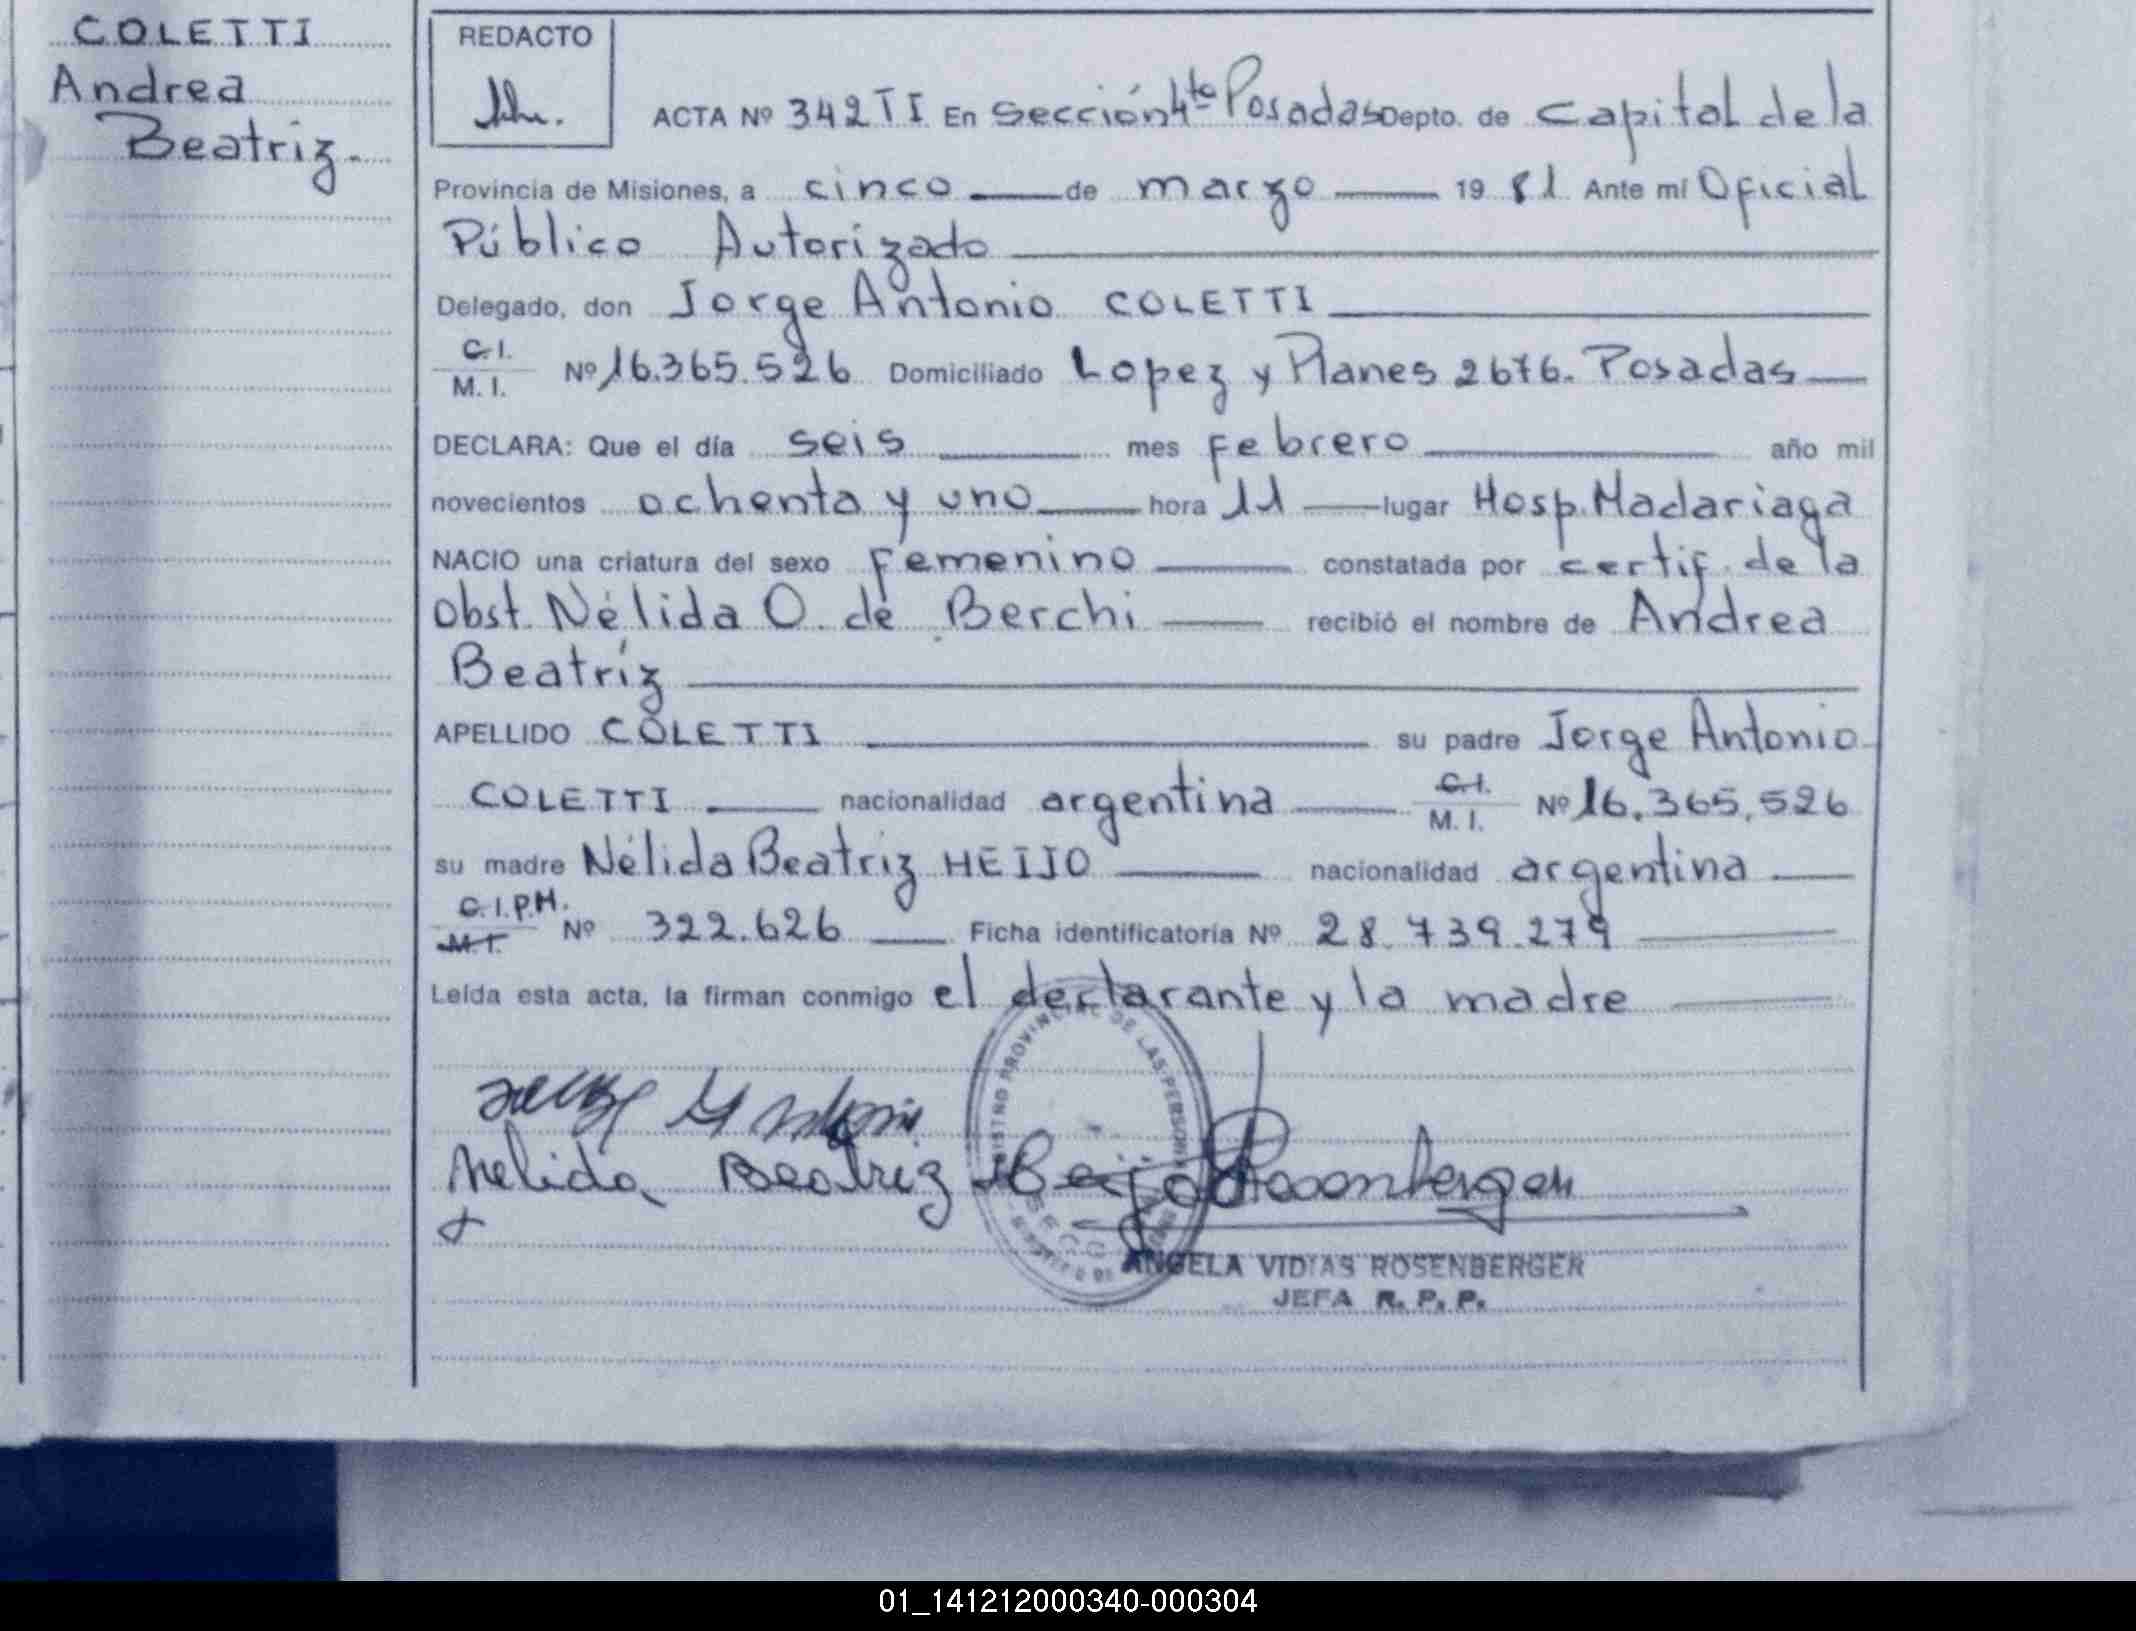 COLETTI
Andrea
Beatriz.
REDACTO
ACTA Nº 342 TI En Sección 4ta Posadas Depto. de Capital de la
Provincia de Misiones, a cinco de marzo 1981 Ante mí Oficial
Público Autorizado
Delegado, don Jorge Antonio COLETTI
C.I.
M.I. Nº 16.365.526 Domiciliado Lopez y Planes 2676. Posadas
DECLARA: Que el día seis mes febrero año mil
novecientos ochenta y uno hora 11 lugar Hosp. Madariaga
NACIO una criatura del sexo femenino constatada por certif. de la
Obst. Nélida O. de Berchi recibió el nombre de Andrea
Beatríz
APELLIDO COLETTI su padre Jorge Antonio
COLETTI nacionalidad argentina C.I. M.I. Nº 16.365.526
su madre Nélida Beatriz HEIJO nacionalidad argentina
C.I.P.M.
M.I. Nº 322.626 Ficha identificatoria Nº 28.739.279
Leída esta acta, la firman conmigo el declarante y la madre
Nelida Beatriz
PROVINCIAL DE LAS PERSONAS
ANGELA VIDIAS ROSENBERGER
JEFA R. P. P.
01_141212000340-000304